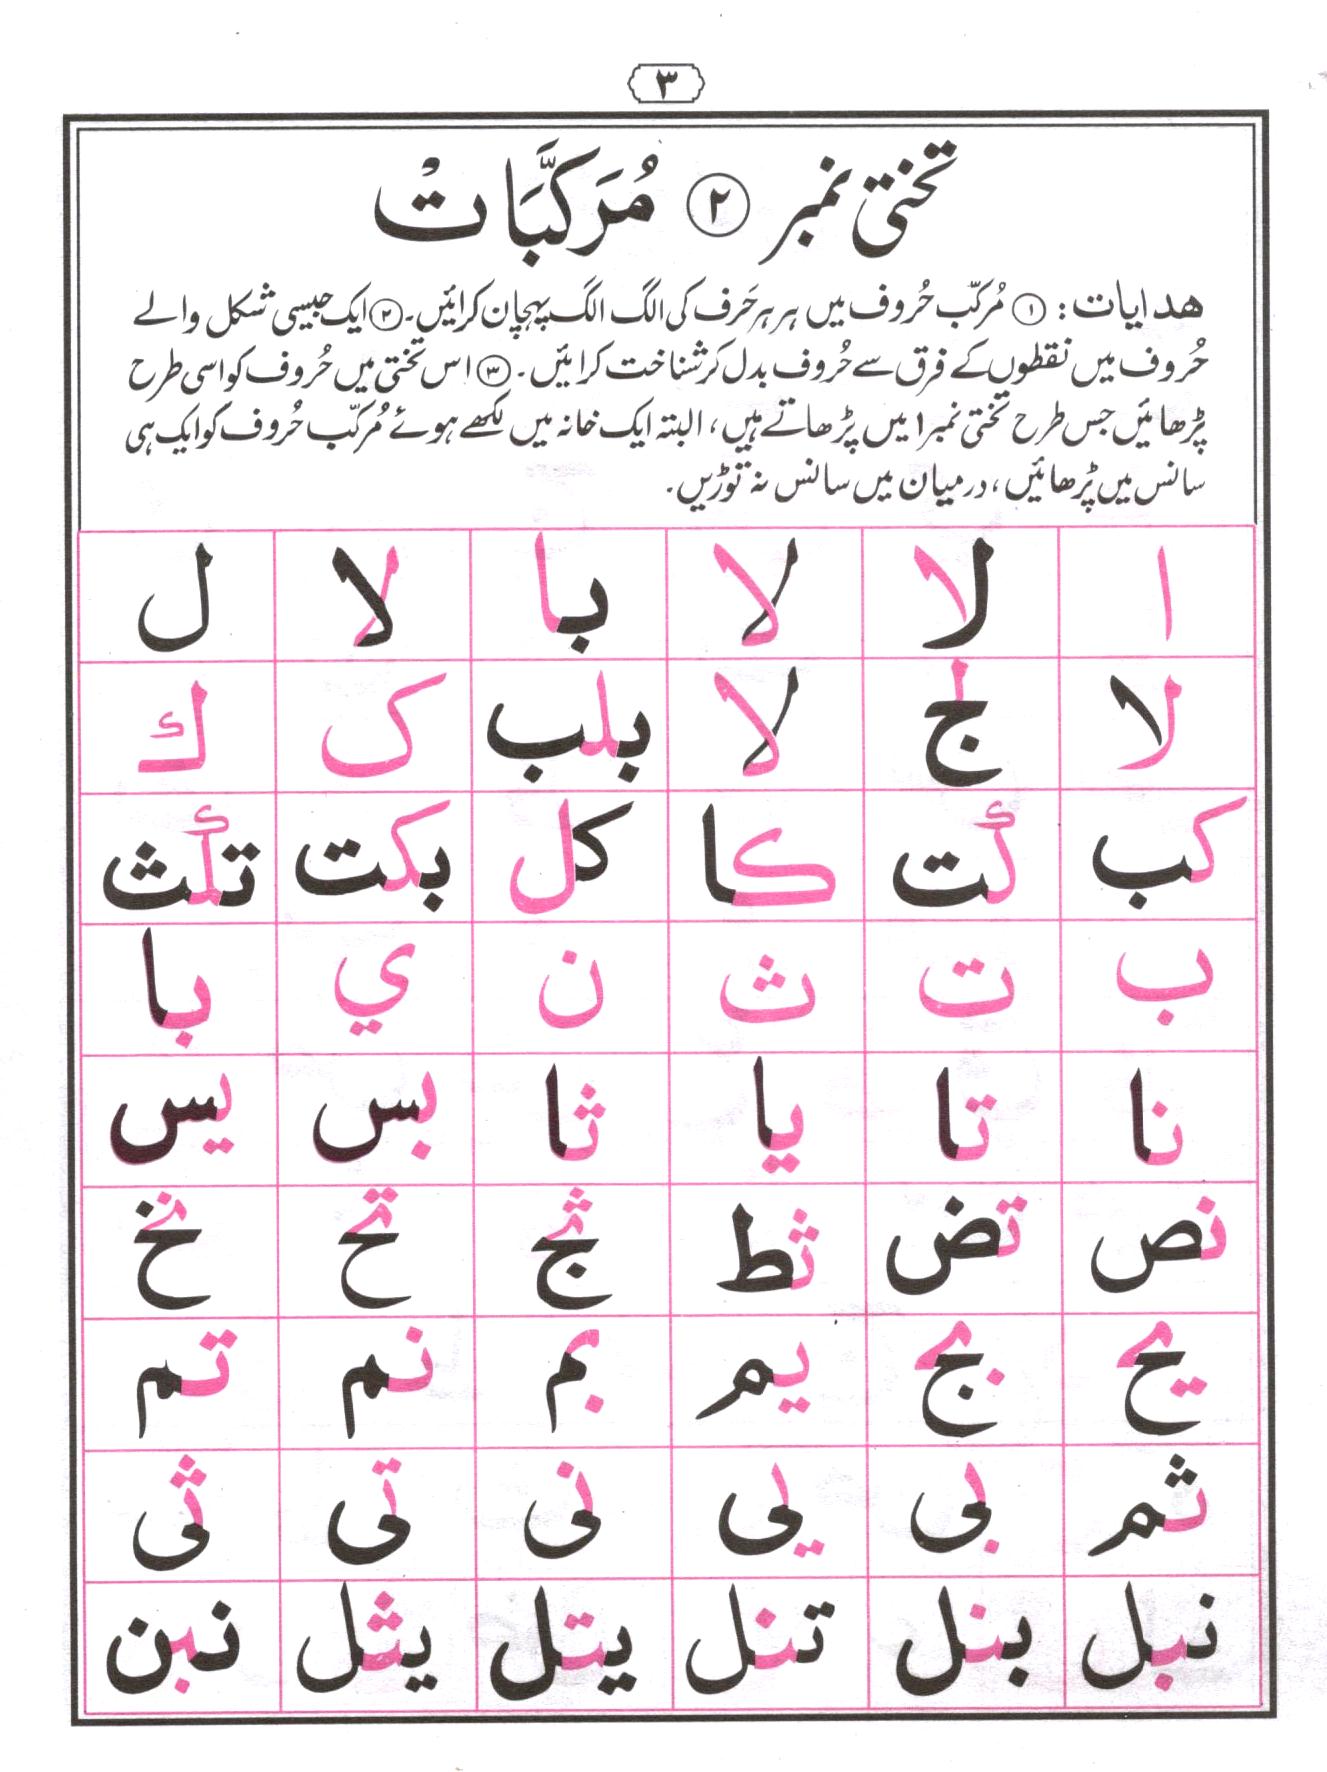 ٣
تختی نمبر ٢ مُرَکَّبَاتْ
ھدایات: ① مُرکّب حُروف میں ہر ہر حَرف کی الگ الگ پہچان کرائیں۔ ② ایک جیسی شکل والے
حُروف میں نقطوں کے فرق سے حُروف بدل کر شناخت کرائیں۔ ③ اس تختی میں حُروف کو اسی طرح
پڑھائیں جس طرح تختی نمبر ۱ میں پڑھاتے ہیں، البتہ ایک خانہ میں لکھے ہوئے مُرکّب حُروف کو ایک ہی
سانس میں پڑھائیں، درمیان میں سانس نہ توڑیں۔
ا لا لا با لا ل
لا لج لا بلب ک ك
کب كت کا کل بکت تكث
ب ت ث ن ي با
نا تا یا ثا بس یس
نص تض ثط ثج تح نخ
یح بج یم بم نم تم
ثم بی یی نی تی ثی
نبل بنل تنل یتل یثل نبن